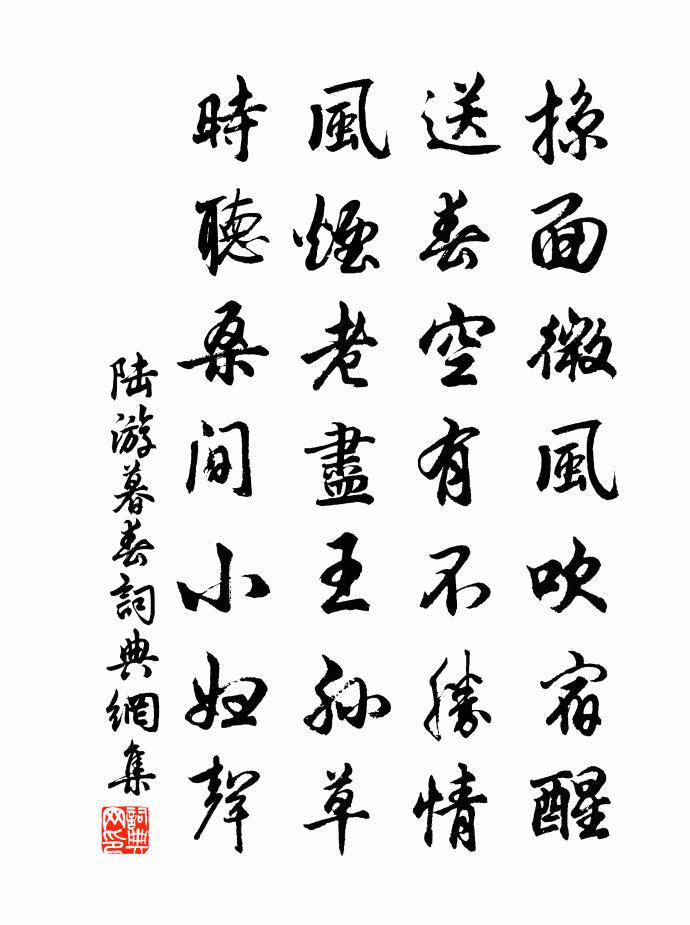 掠面微風吹宿醒
送春空有不勝情
風煙老盡王孫草
時聽桑間小婦聲
陆游暮春詞典網集
詞典网印